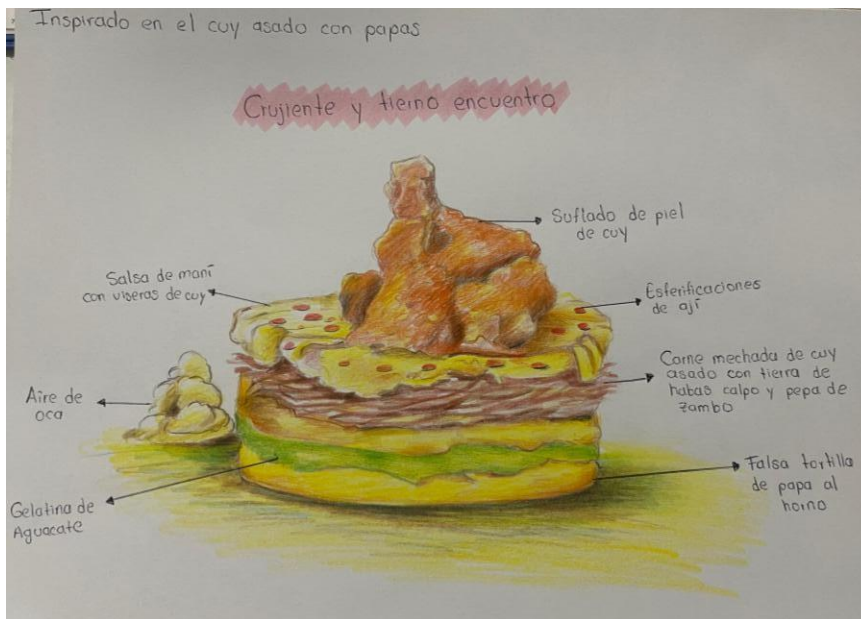 Inspirado en el cuy asado con papas
Crujiente y tierno encuentro
Suflado de piel
de cuy
Salsa de maní
con viseras de cuy
Esferificaciones
de ají
Carne mechada de cuy
asado con tierra de
habas calpo y pepa de
zambo
Aire de
oca
Falsa tortilla
de papa al
horno
Gelatina de
Aguacate